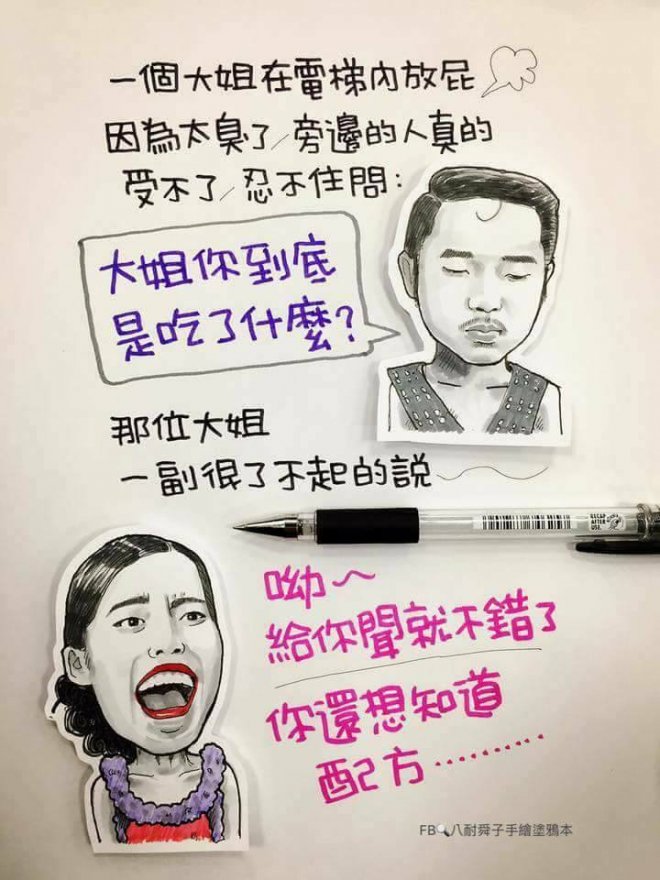 一個大姐在電梯內放屁
因為太臭了/旁邊的人真的
受不了/忍不住問:
大姐你到底
是吃了什麼?
那位大姐
一副很了不起的說
RECAP
AFTER
USE
呦~
給你聞就不錯了
你還想知道
配方………
FB🔍八耐舜子手繪塗鴉本